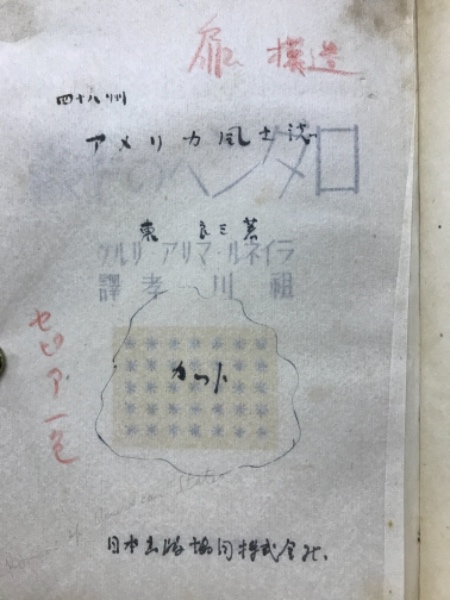 扉 模造
四十八州
アメリカ風土誌
ロダンへの手紙
東 良三著
ライネル・マリア・リルケ
祖川 孝 譯
セピア一色
カット
American States
日本出版協同株式会社.